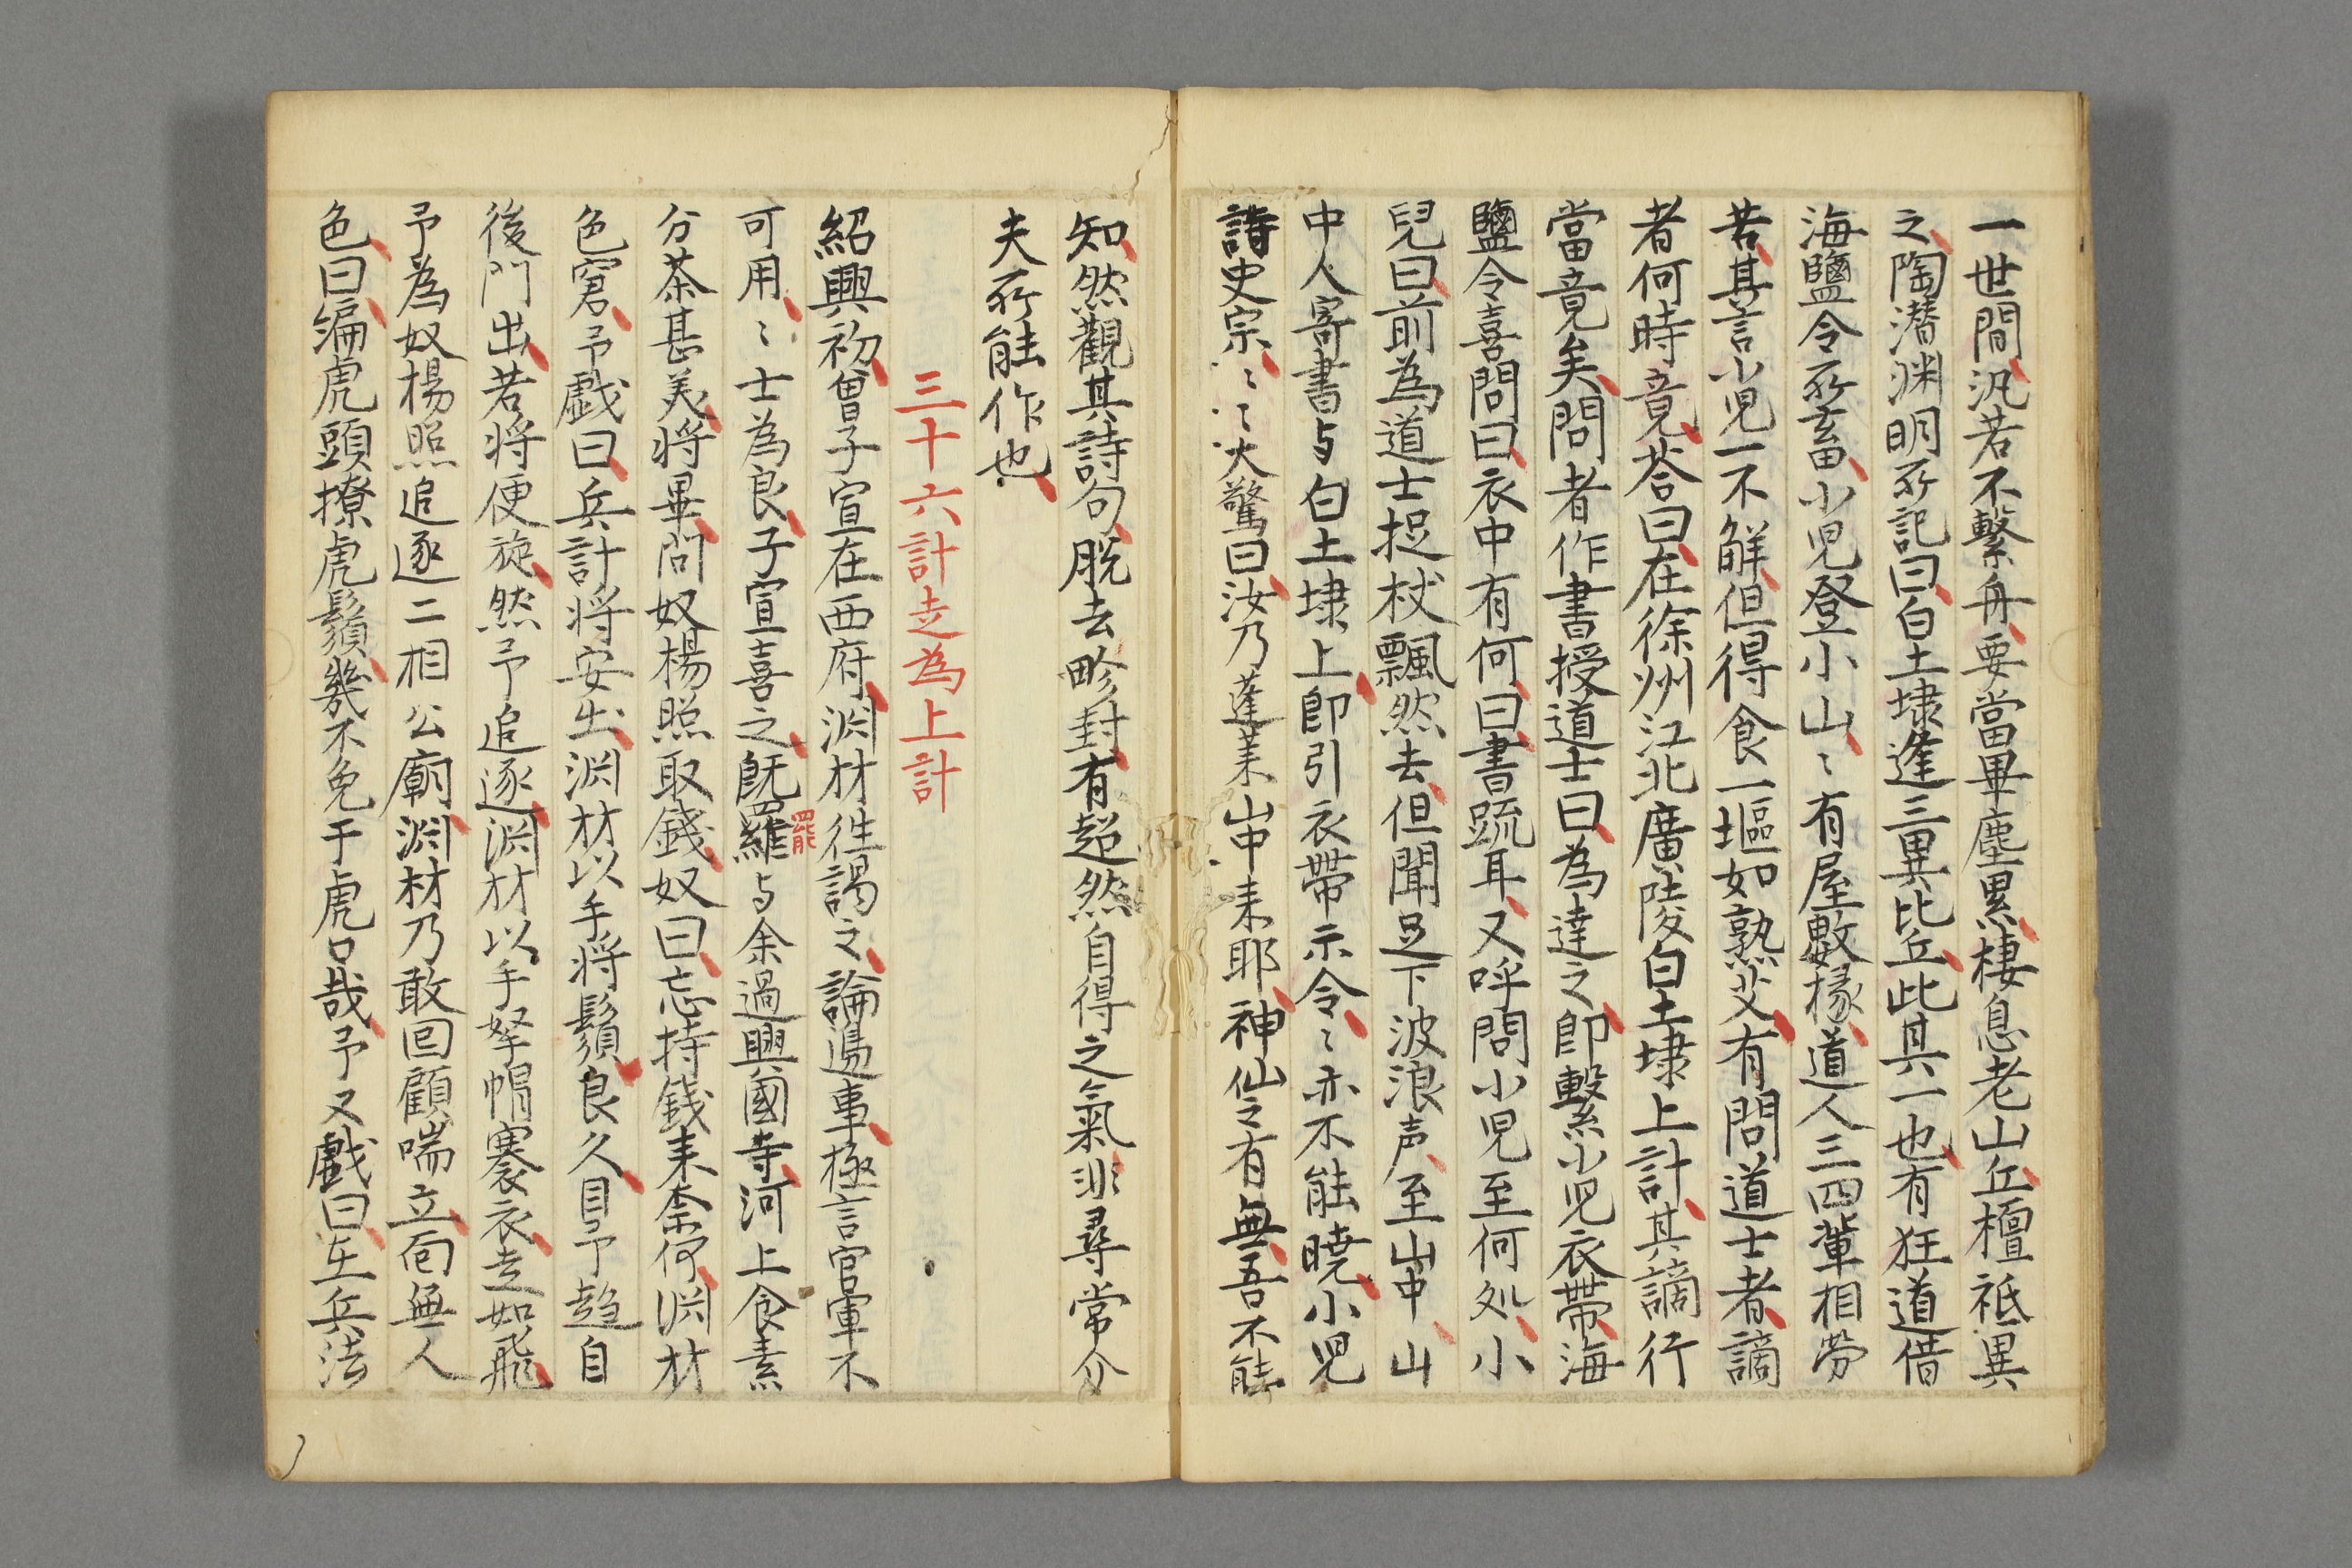 一世間汎若不繫舟要當畢塵累棲息老山丘檀祇異
之陶潛渊明所記曰白土埭逢三異比丘此其一也有狂道借
海鹽令所畜小児登小山〻有屋數椽道人三四輩相勞
苦其言小児一不觧但得食一塸如熟艾有問道士者謫
者何時竟荅曰在徐州江北廣陵白土埭上計其謫行
當竟矣問者作書授道士曰為達之即繫小児衣帶海
鹽令喜問曰衣中有何曰書䟽耳又呼問小児至何処小
兒曰前為道士捉杖飄然去但聞足下波浪声至山中山
中人寄書与白土埭上即引衣帶示令〻亦不能曉小児
詩史宗〻〻大驚曰汝乃蓬萊山中来耶神仙之有無吾不能
知然觀其詩句脫去畛封有超然自得之氣非尋常介
夫所能作也
三十六計走為上計
紹興初曾子宣在西府渊材徃謁之論邊事極言官軍不
可用〻士為良子宣喜之既羅与余過興國寺河上食素
罷
分茶甚美将畢問奴楊照取錢奴曰忘持錢来奈何渊材
色窘予戯曰兵計将安出渊材以手将鬚良久目予趍自
後門出若将便旋然予追逐渊材以手拏帽褰衣走如飛
予為奴楊照追逐二相公廟渊材乃敢回顧喘立面無人
色曰編虎頭撩虎鬚幾不免于虎口哉予又戯曰在兵法